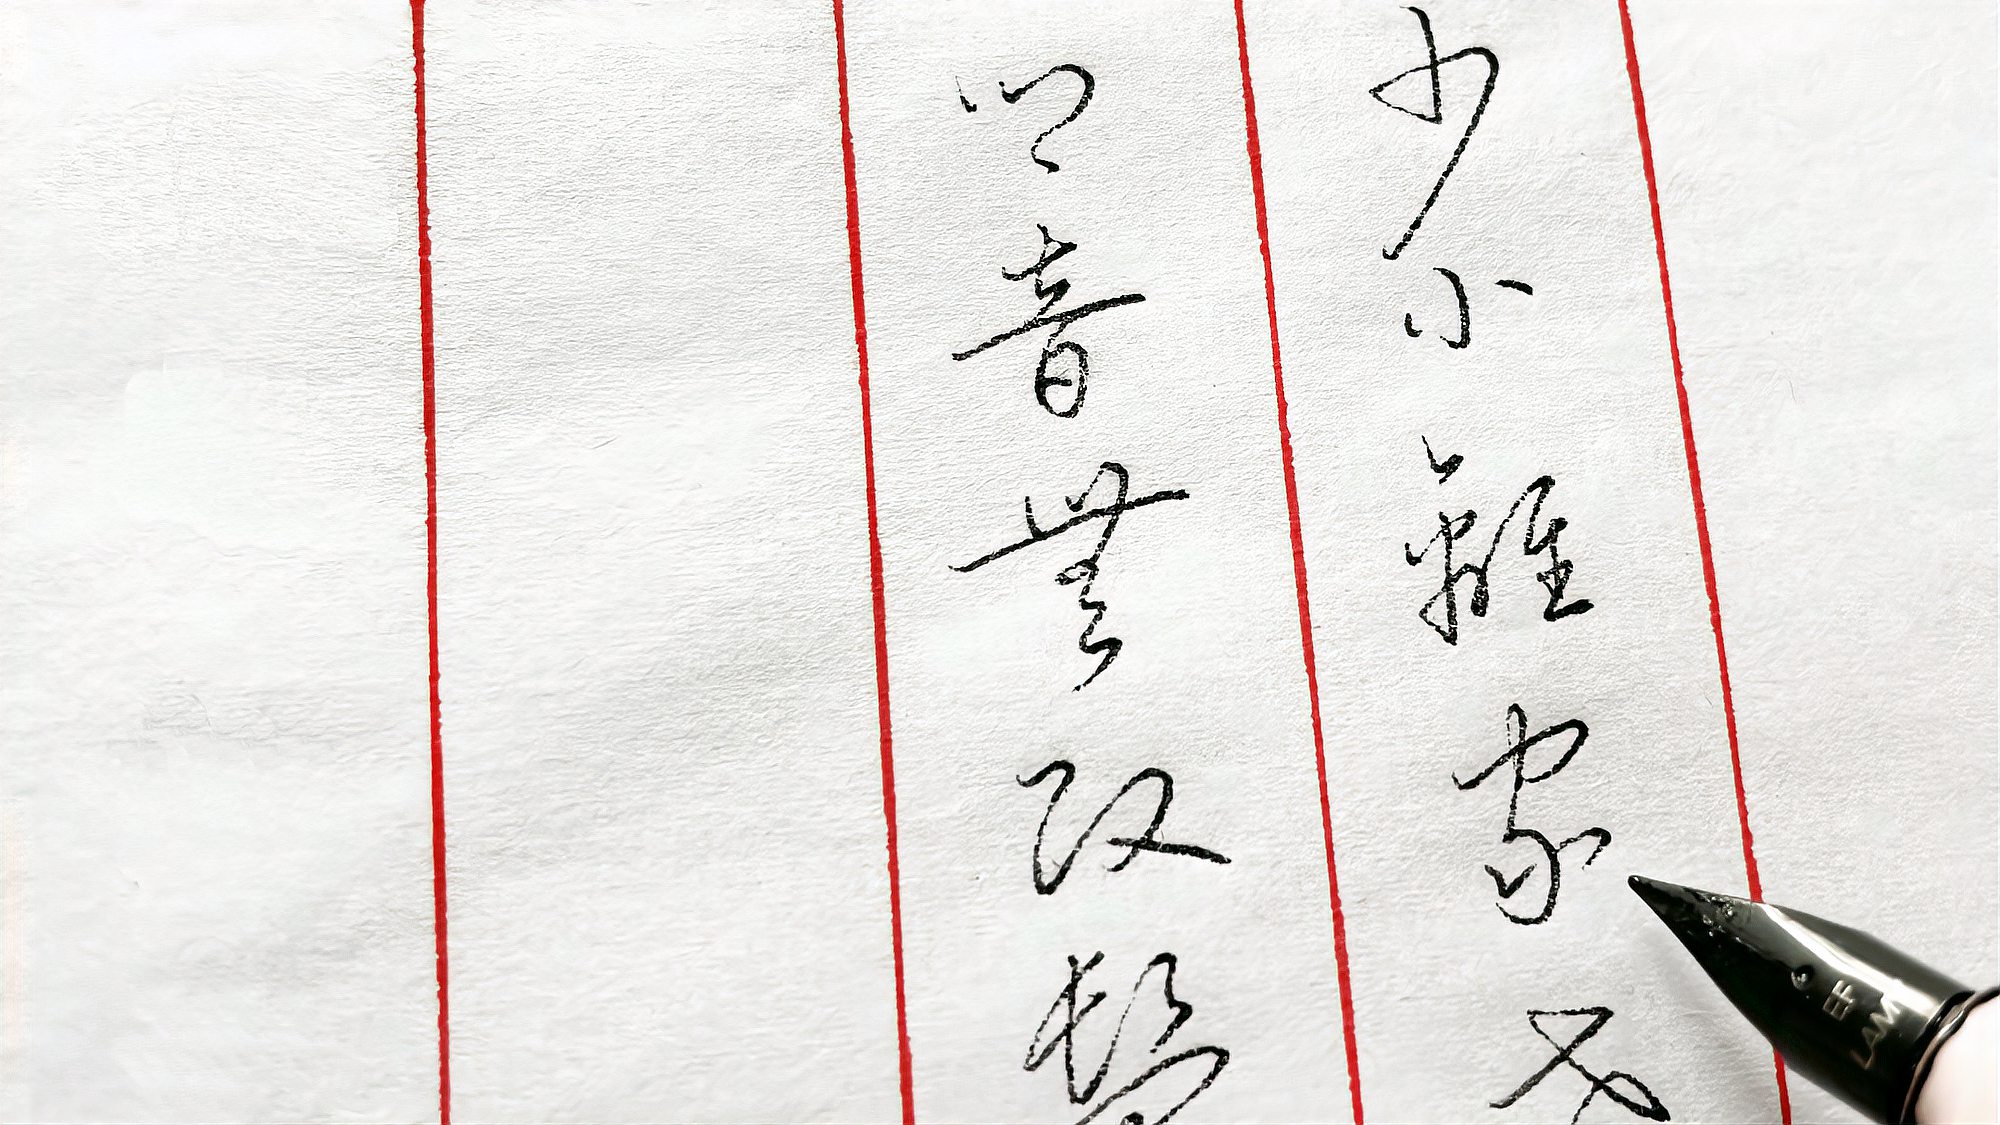 少小離家老
鄉音無改鬢
EF
LAM